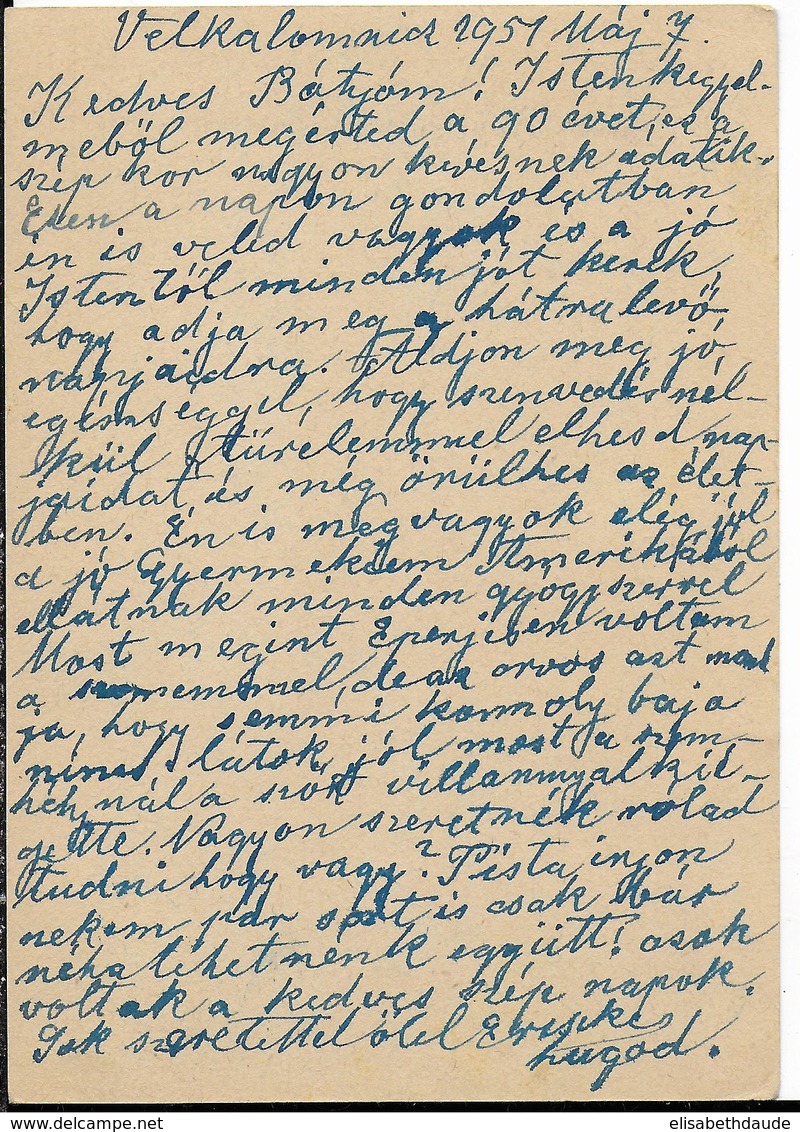 Velkalomnicz 1951 Máj 7.
Kedves Bátyóm! Isten kegyel-
meböl megérted a 90 évet, ez a
szép kor nagyon kevésnek adatik.
Ezen a napon gondolatban
én is veled vagyok és a jó
Istentől minden jót kerek,
hogy adja meg a hátralevő
napjaidra. Aldjon meg jó
egészséggel, hogy szenvedés nél-
kül türelemmel elhesd nap-
jaidat és még örülhes az élet-
ben. Én is megvagyok elég jól
a jó Gyermekeim Amerikából
ellátnak minden gyógyszerrel
Most megint Eperjesen voltam
a szememmel, de az orvos azt mond
ja, hogy semmi komoly baja
nincs, látok jól most a szem-
héj nál a szört villannyal kié-
gette. Nagyon szeretnék rólad
tudni hogy vagy? Pista irjon
nekem pár sort is csak bár
néha lehetnénk együtt! azok
voltak a kedves szép napok.
Sok szeretettel ölel Erzsike
hugod.
elisabethdaude